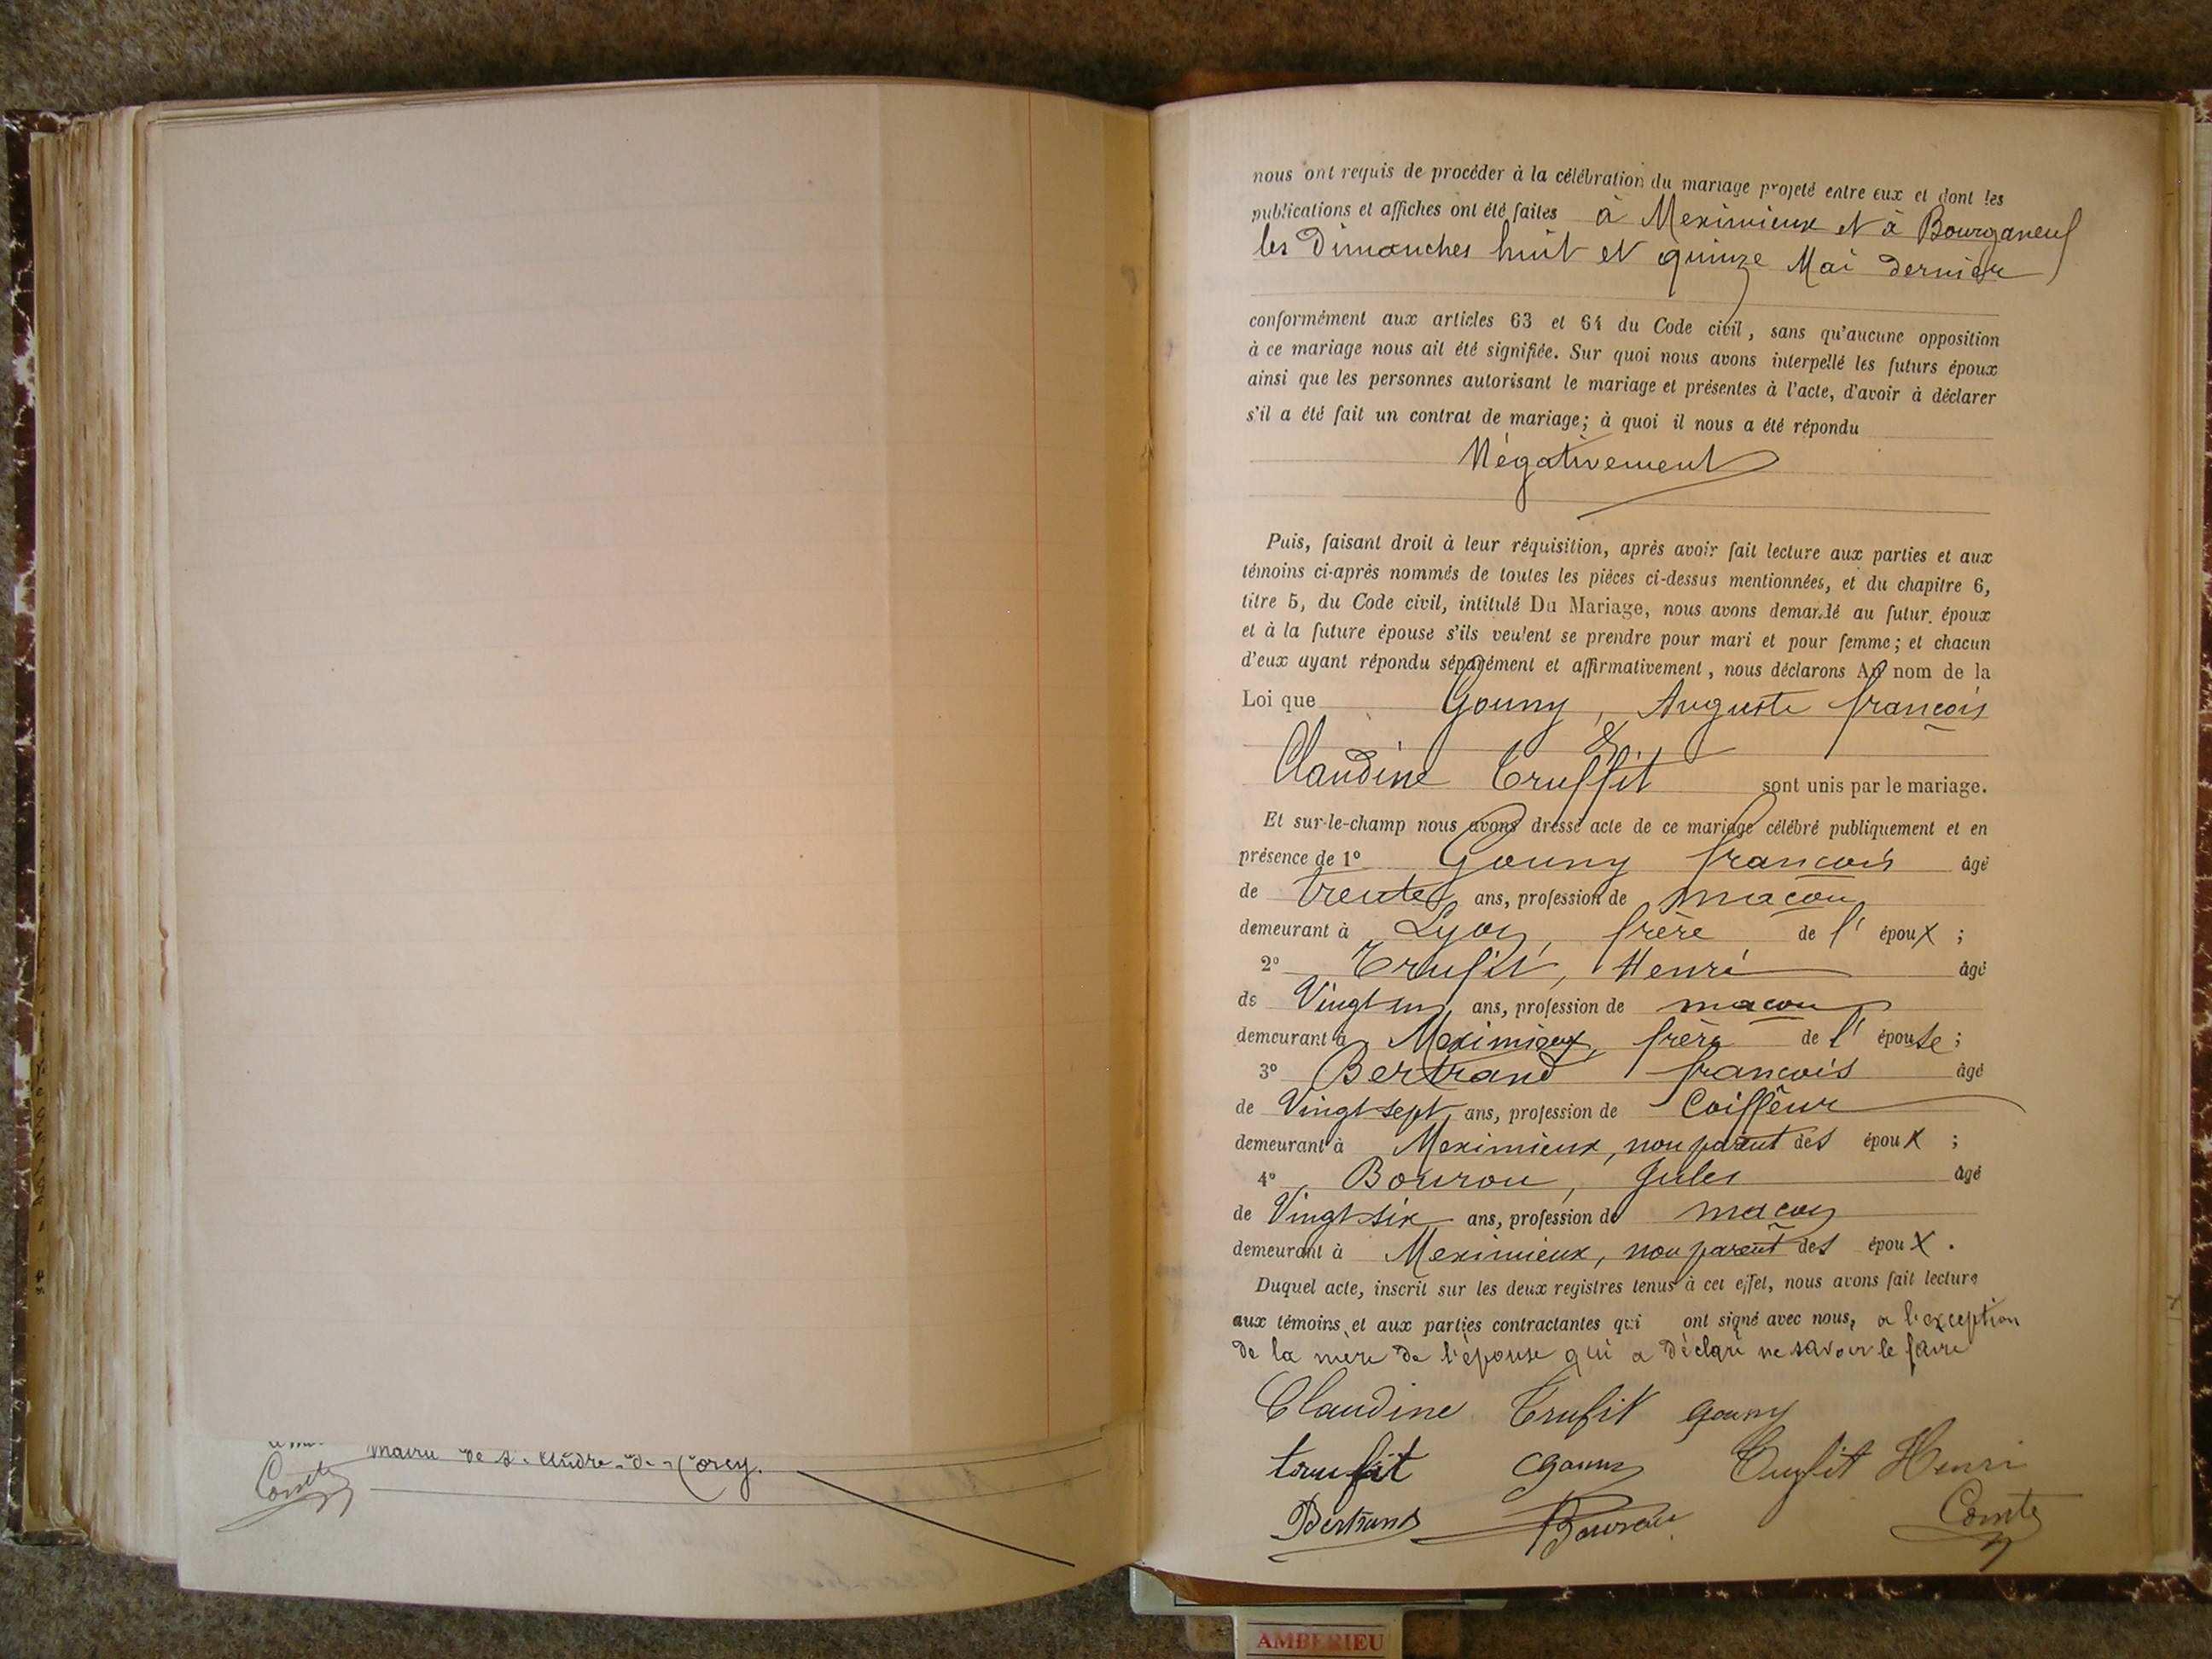 Mairie de St. André-de-Corcy.
Comte
nous ont requis de procéder à la célébration du mariage projeté entre eux et dont les
publications et affiches ont été faites à Meximieux et à Bourganeuf
les Dimanches huit et quinze Mai dernier
conformément aux articles 63 et 64 du Code civil, sans qu'aucune opposition
à ce mariage nous ait été signifiée. Sur quoi nous avons interpellé les futurs époux
ainsi que les personnes autorisant le mariage et présentes à l'acte, d'avoir à déclarer
s'il a été fait un contrat de mariage; à quoi il nous a été répondu
Négativement
Puis, faisant droit à leur réquisition, après avoir fait lecture aux parties et aux
témoins ci-après nommés de toutes les pièces ci-dessus mentionnées, et du chapitre 6,
titre 5, du Code civil, intitulé Du Mariage, nous avons demandé au futur époux
et à la future épouse s'ils veulent se prendre pour mari et pour femme; et chacun
d'eux ayant répondu séparément et affirmativement, nous déclarons Au nom de la
Loi que Gouny, Auguste françois
&
Claudine Truffit sont unis par le mariage.
Et sur-le-champ nous avons dressé acte de ce mariage célébré publiquement et en
présence de 1º Gouny francois âgé
de trente ans, profession de maçon
demeurant à Lyon, frère de l' époux ;
2º Trufit, Henri âgé
de Vingt un ans, profession de maçon
demeurant à Meximieux, frère de l' épouse ;
3º Bertrand francois âgé
de Vingt sept ans, profession de Coiffeur
demeurant à Meximieux, non parent des époux ;
4º Bourou, Jules âgé
de Vingt six ans, profession de maçon
demeurant à Meximieux, non parent des époux .
Duquel acte, inscrit sur les deux registres tenus à cet effet, nous avons fait lecture
aux témoins et aux parties contractantes qui ont signé avec nous, a l'exception
de la mere de l'épouse qui a déclaré ne savoir le faire
Claudine Trufit gouny
trufit Gouny Trufit Henri
Bertrand Comte
AMBERIEU